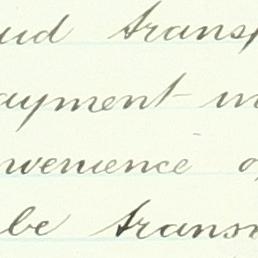 ud transp
ayment in
nvenience o
be trans